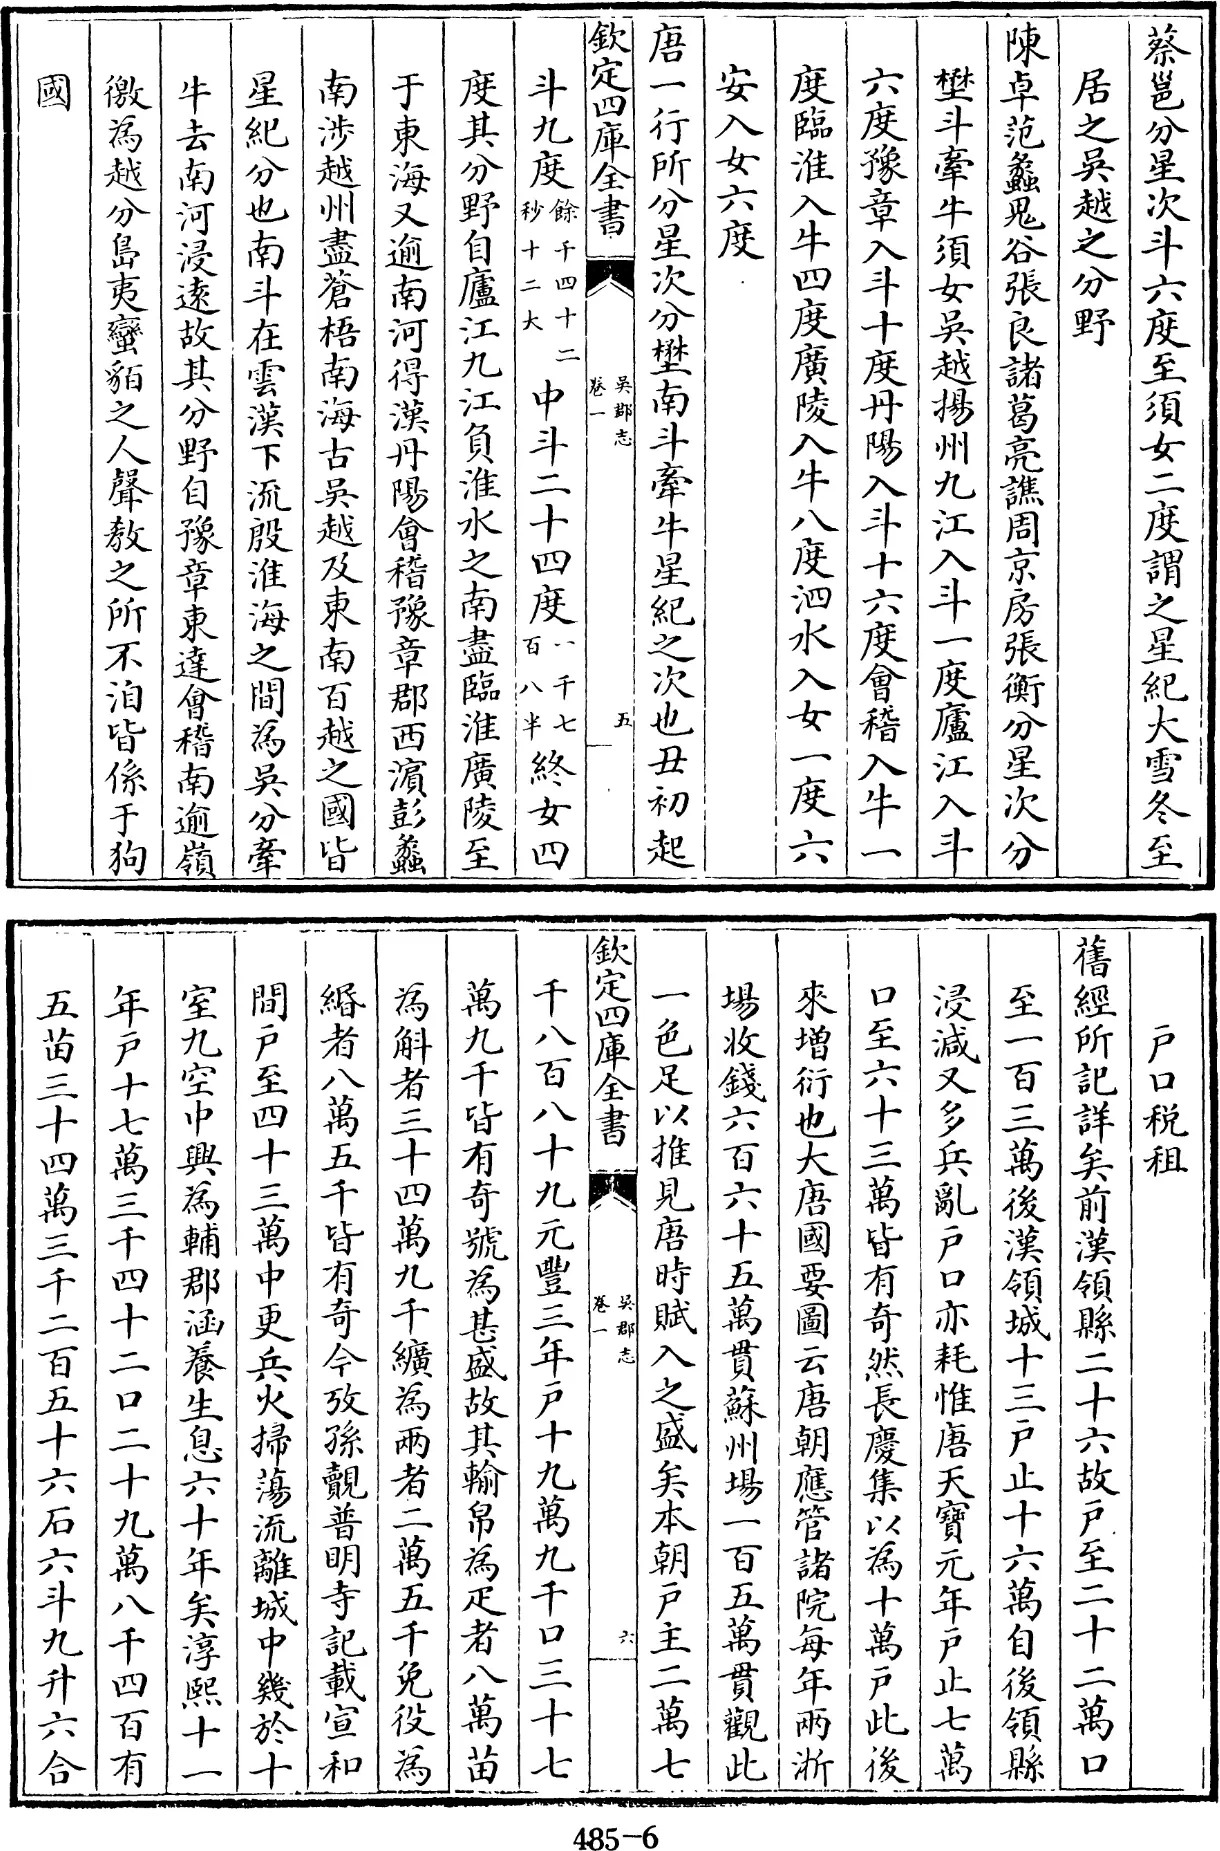 蔡邕分星次斗六度至須女二度謂之星紀大雪冬至
居之吳越之分野
陳卓范蠡鬼谷張良諸葛亮譙周京房張衡分星次分
壄斗牽牛須女吳越揚州九江入斗一度廬江入斗
六度豫章入斗十度丹陽入斗十六度會稽入牛一
度臨淮入牛四度廣陵入牛八度泗水入女一度六
安入女六度
唐一行所分星次分壄南斗牽牛星紀之次也丑初起
欽定四庫全書
吳郡志
卷一
五
斗九度餘千四十二秒十二太中斗二十四度一千七百八半終女四
度其分野自廬江九江負淮水之南盡臨淮廣陵至
于東海又逾南河得漢丹陽會稽豫章郡西濱彭蠡
南涉越州盡蒼梧南海古吳越及東南百越之國皆
星紀分也南斗在雲漢下流殷淮海之間為吳分牽
牛去南河浸遠故其分野自豫章東達會稽南逾嶺
徼為越分島夷蠻貊之人聲教之所不洎皆係于狗
國
戶口稅租
舊經所記詳矣前漢領縣二十六故戶至二十二萬口
至一百三萬後漢領城十三戶止十六萬自後領縣
浸減又多兵亂戶口亦耗惟唐天寶元年戶止七萬
口至六十三萬皆有奇然長慶集以為十萬戶此後
來增衍也大唐國要圖云唐朝應管諸院每年兩浙
場收錢六百六十五萬貫蘇州場一百五萬貫觀此
一色足以推見唐時賦入之盛矣本朝戶主二萬七
欽定四庫全書
吳郡志
卷一
六
千八百八十九元豐三年戶十九萬九千口三十七
萬九千皆有奇號為甚盛故其輸帛為疋者八萬苗
為斛者三十四萬九千纊為兩者二萬五千免役為
緡者八萬五千皆有奇今攷孫覿普明寺記載宣和
間戶至四十三萬中更兵火掃蕩流離城中幾於十
室九空中興為輔郡涵養生息六十年矣淳熙十一
年戶十七萬三千四十二口二十九萬八千四百有
五苗三十四萬三千二百五十六石六斗九升六合
485-6